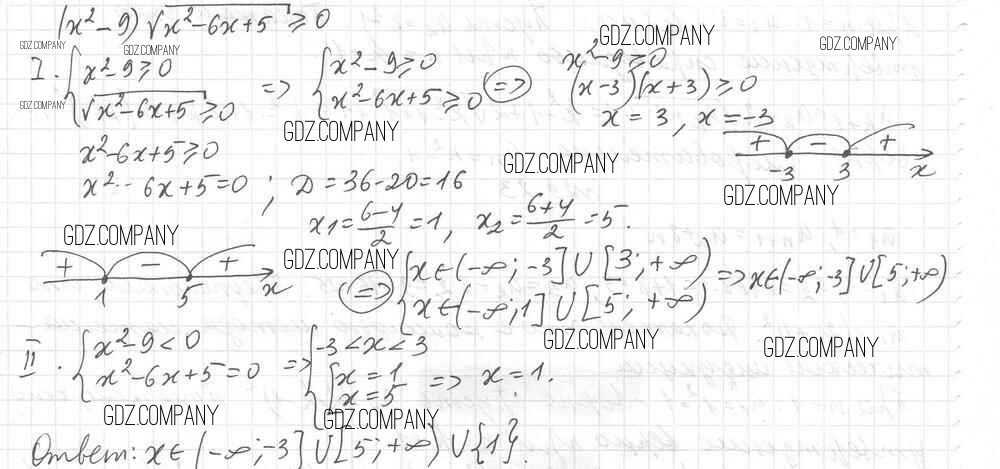 (x²-9)√(x²-6x+5) ≥ 0
GDZ.COMPANY GDZ.COMPANY GDZ.COMPANY GDZ.COMPANY
I. { x²-9≥0 => { x²-9≥0 (=>) x²-9≥0
GDZ.COMPANY { √(x²-6x+5) ≥0 { x²-6x+5≥0 (x-3)(x+3)≥0
GDZ.COMPANY x = 3, x = -3
x²-6x+5≥0 + - +
GDZ.COMPANY -3 3 x
x²-6x+5=0 ; D=36-20=16 GDZ.COMPANY
x₁=(6-4)/2=1, x₂=(6+4)/2=5.
GDZ.COMPANY GDZ.COMPANY
+ - +
1 5 x
(=>) { x∈(-∞;-3]∪[3;+∞) => x∈(-∞;-3]∪[5;+∞)
{ x∈(-∞;1]∪[5;+∞)
GDZ.COMPANY GDZ.COMPANY
II. { x²-9<0 => { -3<x<3
{ x²-6x+5=0 { [ x=1 => x=1.
[ x=5
GDZ.COMPANY GDZ.COMPANY
Ответ: x∈(-∞;-3]∪[5;+∞)∪{1}.